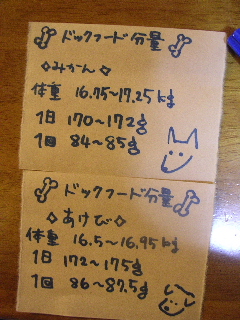 ドックフード分量
◇みかん◇
体重 16.75〜17.25kg
1日 170〜172g
1回 84〜85g
ドックフード分量
◇あけび◇
体重 16.5〜16.95kg
1日 172〜175g
1回 86〜87.5g